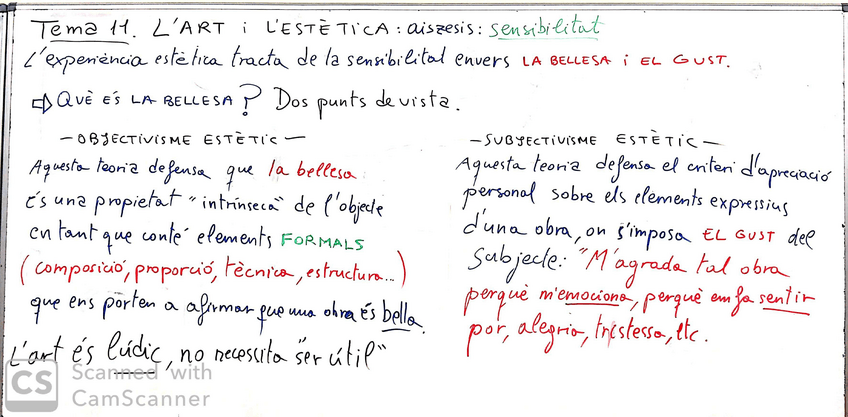 Tema 11. L'ART i L'ESTÈTICA: aiszesis: sensibilitat
L'experiència estètica tracta de la sensibilitat envers LA BELLESA i EL GUST.
⇨ QUÈ ÉS LA BELLESA? Dos punts de vista.
- OBJECTIVISME ESTÈTIC -
Aquesta teoria defensa que la bellesa
és una propietat "intrínseca" de l'objecte
en tant que conté elements FORMALS
(composició, proporció, tècnica, estructura...)
que ens porten a afirmar que una obra és bella.
L'art és lúdic, no necessita "ser útil"
- SUBJECTIVISME ESTÈTIC -
Aquesta teoria defensa el criteri d'apreciació
personal sobre els elements expressius
d'una obra, on s'imposa EL GUST del
Subjecte: "M'agrada tal obra
perquè m'emociona, perquè em fa sentir
por, alegria, tristessa, etc.
CS Scanned with
CamScanner